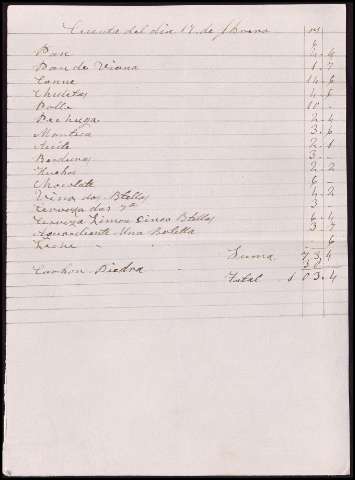 Cuenta del dia 17 de Enero
Pan
Pan de Viana 1 . 7
Carne 14 . 6
Chuletas 4 . 6
Pollo 10 .
Pechuga 2 . 4
Manteca 3 . 6
Aceite 2 . 1
Berduras 3 .
Huebos 2 . 2
Chocolate 6 .
Vino dos Btellas 4 . 2
Cerveza dos 3
Cerveza Limon Cinco Btellas 6 . 4
Aguardiente Una Botella 3 . 7
Leche . 6
Suma 73 . 4
Carbon Piedra
Total 103 . 4